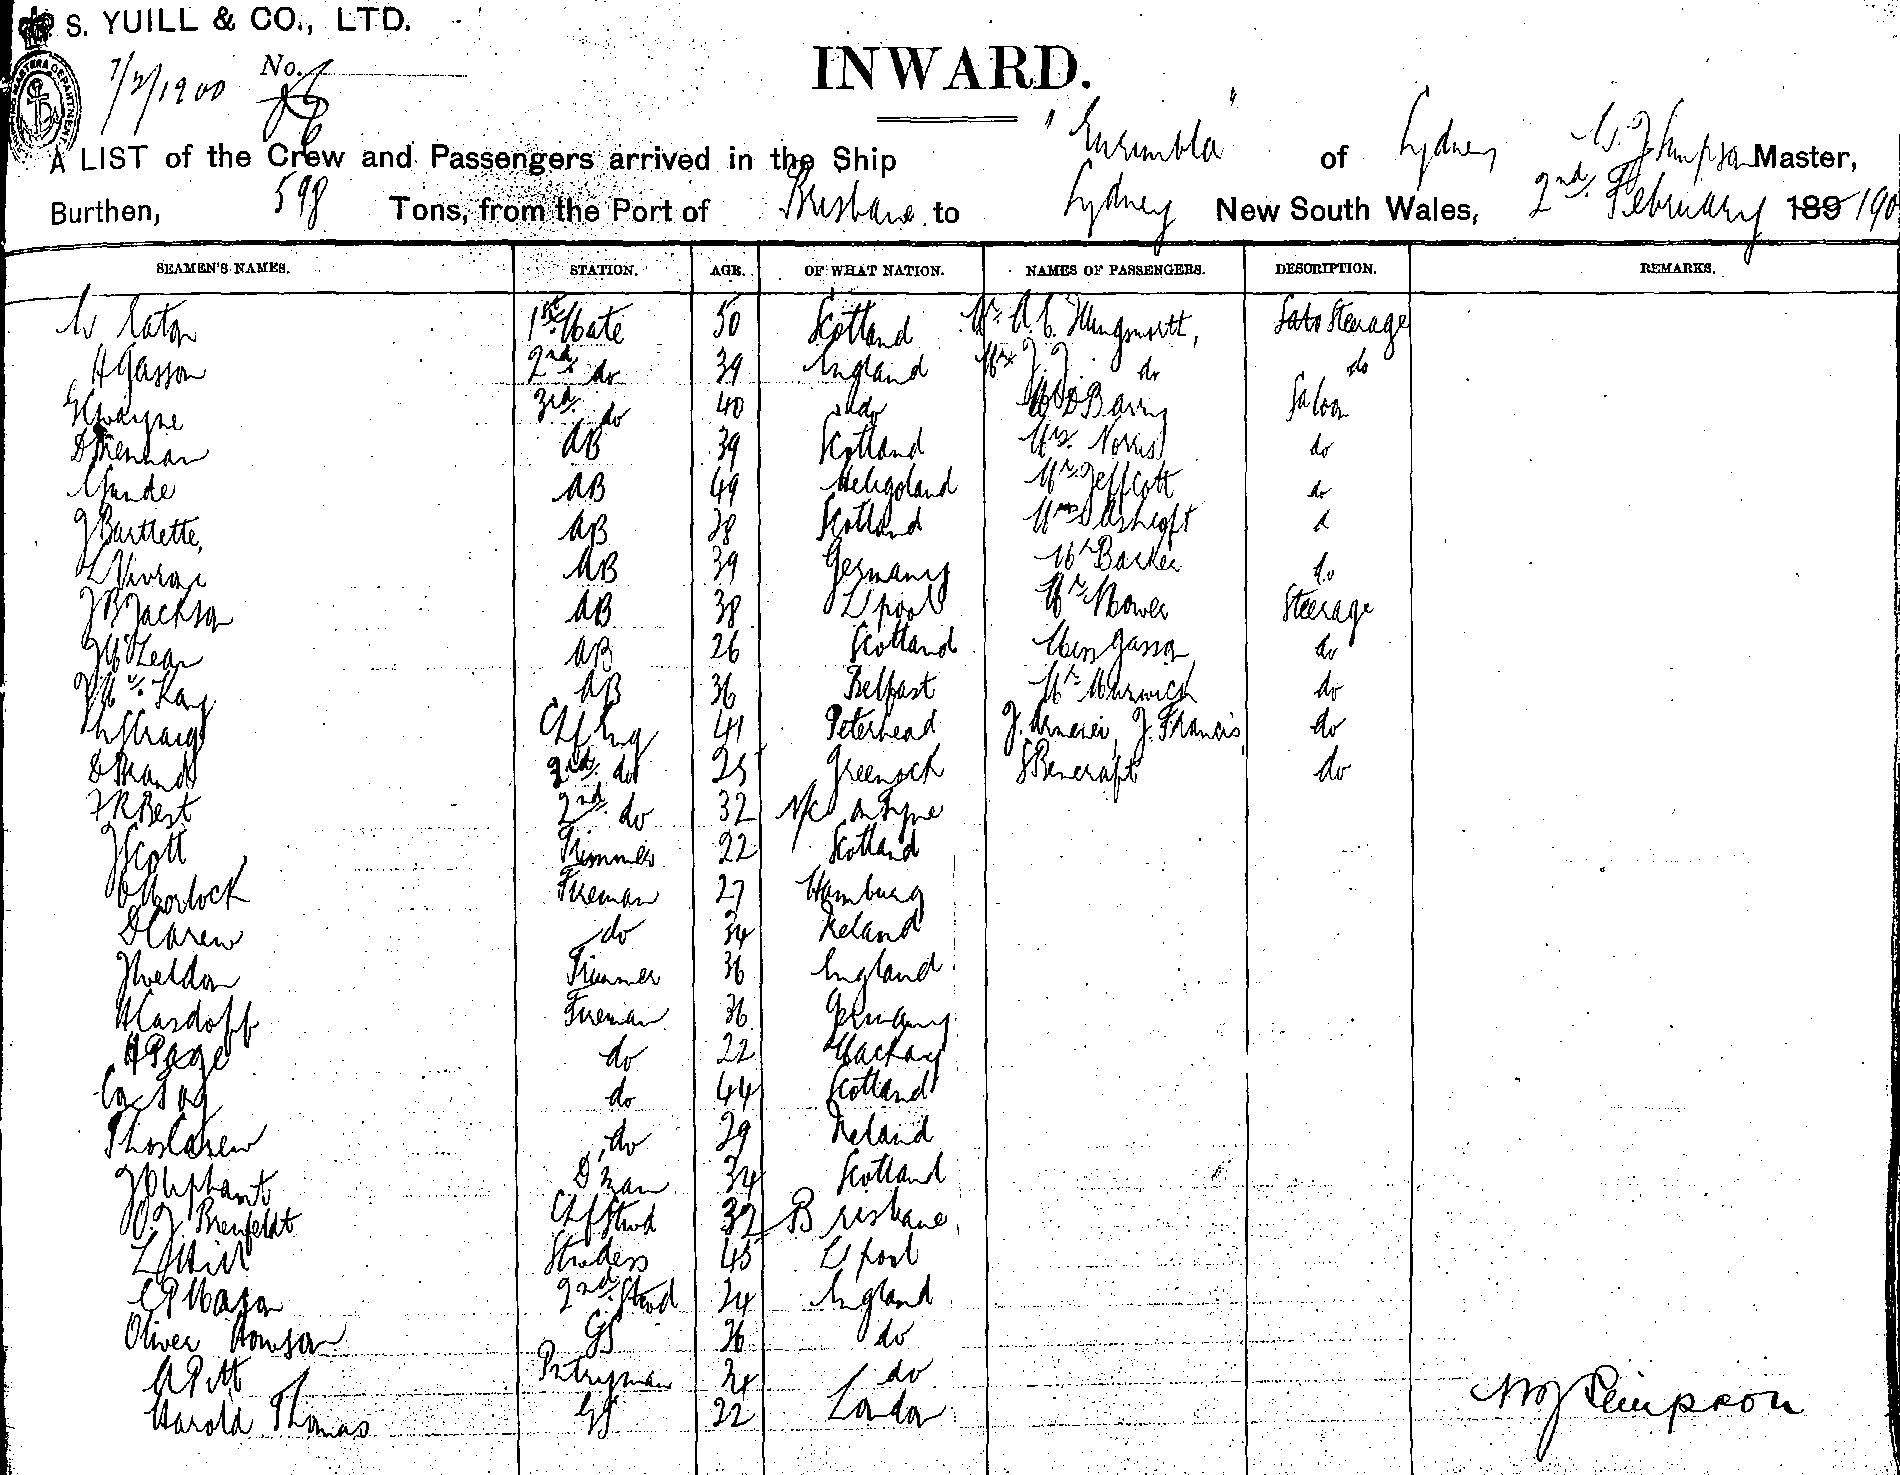 S. YUILL & CO., LTD.
7/2/1900 No.
INWARD.
A LIST of the Crew and Passengers arrived in the Ship "Eurimbla" of Sydney W. J. Simpson Master,
Burthen, 598 Tons, from the Port of Brisbane to Sydney New South Wales, 2nd February 189 190
SEAMEN'S NAMES. STATION. AGE. OF WHAT NATION. NAMES OF PASSENGERS. DESCRIPTION. REMARKS.
W Eaton 1st Mate 50 Scotland Mr A. C. Illingworth, Steerage
H Gasson 2nd do 39 England do do
3rd do 40 do Barry Saloon
D Brennan AB 39 Scotland Mrs. Norris do
AB 49 Heligoland Mr. Jeffcott do
J Bartlette, AB 38 Scotland
AB 39 Germany Mr Barker do
J B Jackson AB 38 L'pool Mr. Mower Steerage
J McLean AB 26 Scotland Miss Gasson do
J Mc Kay AB 36 Belfast Mr Warwick do
Craig Chf Eng 41 Peterhead J. Francis, do
D Brand 2nd do 25 Greenock S Bencraft do
J R Best 2nd do 32 N/C on Tyne
J Scott Trimmer 22 Scotland
Morlock Fireman 27 Hamburg
D Carew do 34 Ireland
J Weldon Trimmer 36 England
H Cardoff Fireman 36 Germany
H Page do 22 Mackay
do 44 Scotland
Thos Carew do 29 Ireland
J Oliphant D'man 34 Scotland
J. Brenfeldt Chf Stwd 32 Brisbane,
L Hill Stwdess 45 L'pool
C P Mason 2nd Stwd 24 England
Oliver Howson GS 36 do
A Pitt Pntryman 24 do
Harold Thomas GS 22 London
W J Simpson